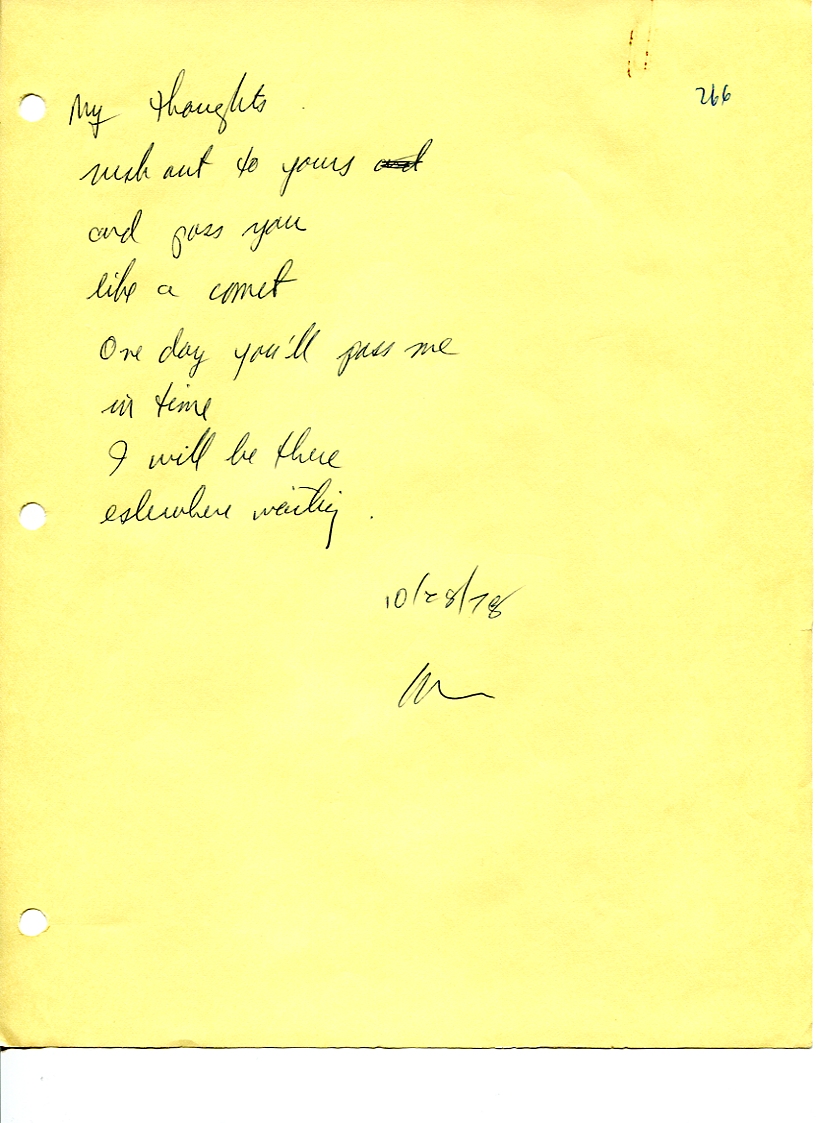 266
My thoughts
rush out to yours and
and pass you
like a comet
One day you'll pass me
in time
I will be there
eslewhere waiting.
10/28/78